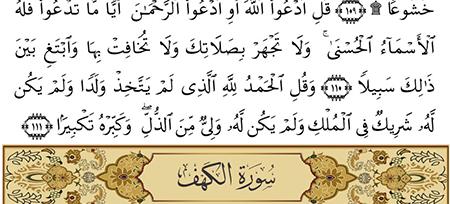 خُشُوعًا ۩ ﴿١٠٩﴾ قُلِ ادْعُوا۟ اللَّهَ أَوِ ادْعُوا۟ الرَّحْمَٰنَ أَيًّا مَّا تَدْعُوا۟ فَلَهُ
الْأَسْمَآءُ الْحُسْنَىٰ ۚ وَلَا تَجْهَرْ بِصَلَاتِكَ وَلَا تُخَافِتْ بِهَا وَابْتَغِ بَيْنَ
ذَٰلِكَ سَبِيلًا ﴿١١٠﴾ وَقُلِ الْحَمْدُ لِلَّهِ الَّذِى لَمْ يَتَّخِذْ وَلَدًا وَلَمْ يَكُن
لَّهُۥ شَرِيكٌ فِى الْمُلْكِ وَلَمْ يَكُن لَّهُۥ وَلِىٌّ مِّنَ الذُّلِّ ۖ وَكَبِّرْهُ تَكْبِيرًۢا ﴿١١١﴾
سُورَةُ الكَهْفِ